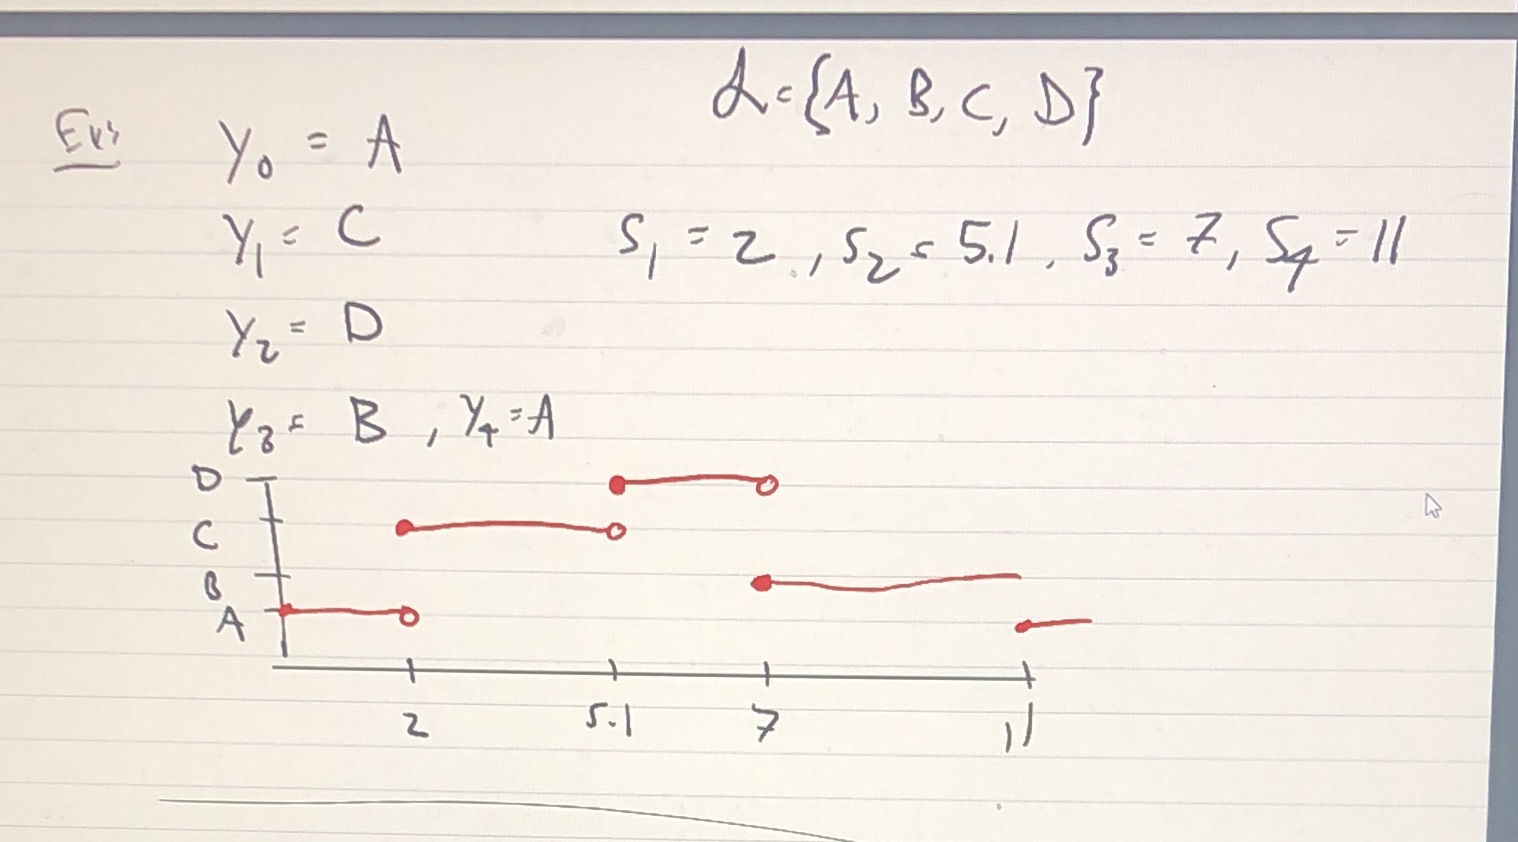 𝓛 = {A, B, C, D}
Ex: Y₀ = A
Y₁ = C
S₁ = 2, S₂ = 5.1, S₃ = 7, S₄ = 11
Y₂ = D
Y₃ = B, Y₄ = A
D
C
B
A
2 5.1 7 11